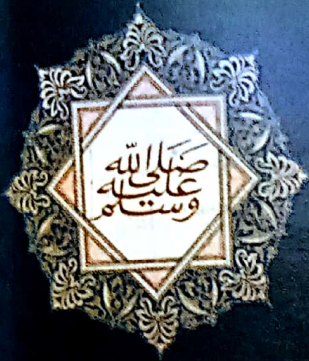 صَلَى اللّٰه
عليه
وسلم